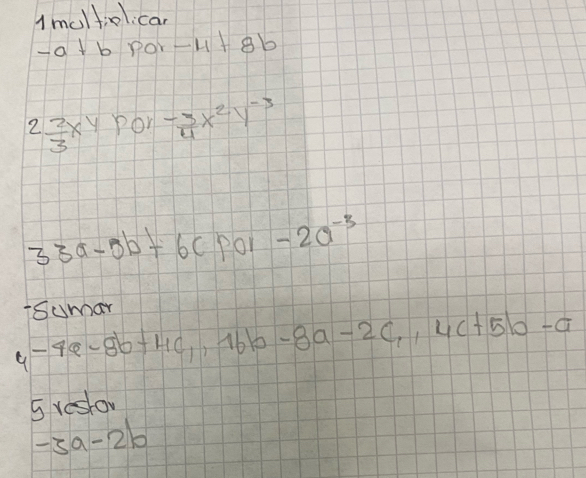 1 multiplicar
-a + b por -4 + 8b
2 2/3 xy por -3/4 x² y⁻³
3 3a - 5b + 6c por -2a⁻³
-Sumar
4 -4a - 8b + 4c,, 16b - 8a - 2c,, 4c + 5b - a
5 restar
-3a - 2b